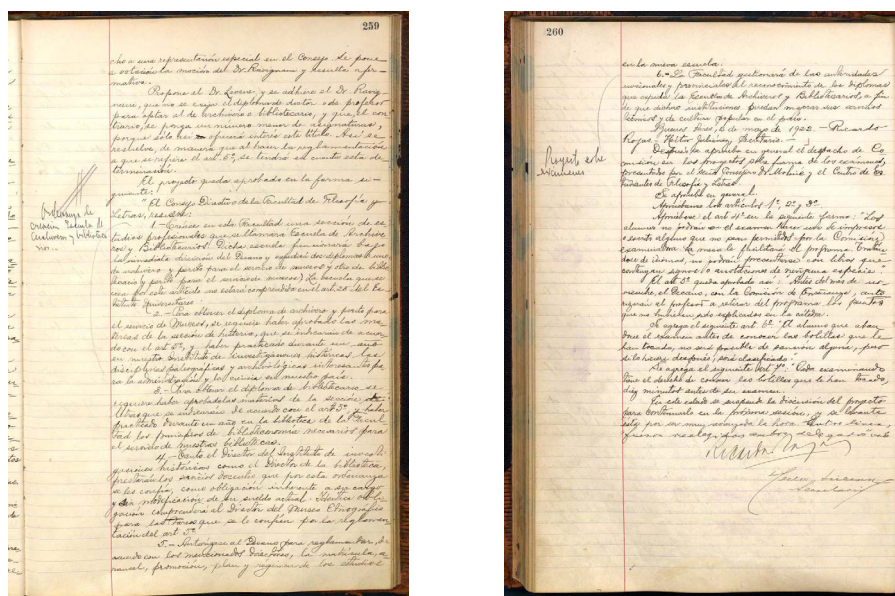 259
cho a una representación especial en el Consejo se pone
a votación la moción del Dr. Ravignani y resulta afir-
mativa.
Propone el Dr. Levene, y se adhiere el Dr. Ravig-
nani, que no se exija el diploma de doctor o de profesor
para optar al de archivero o bibliotecario, y que al con-
trario, se ponga un número menor de asignaturas,
porque sólo así ofrecerá interés este título. Así se
resuelve, de manera que al hacer la reglamentación
a que se refiere el art. 5º, se tendrá en cuenta esta de-
terminación.
El proyecto queda aprobado en la forma si-
guiente:
"El Consejo Directivo de la Facultad de Filosofía y
Letras, resuelve:
Ordenanza de
creación Escuela de
Archiveros y biblioteca
rios.
1.- Créase en esta Facultad una sección de es-
tudios profesionales que se llamará Escuela de Archive-
ros y Bibliotecarios. Dicha escuela funcionará bajo
la inmediata dirección del Decano y expedirá dos diplomas: uno
de archivero y perito para el servicio de museos y otro de biblio-
tecario y perito para el servicio de museos. La escuela que se
crea por este artículo no estará comprendida en el art. 20 del Es-
tatuto Universitario.
2.- Para obtener el diploma de archivero y perito para
el servicio de Museos, se requiere haber aprobado las ma-
terias de la sección de historia, que se indicarán de acuer-
do con el art. 5º, y haber practicado durante un año
en nuestro Instituto de investigaciones históricas, las
disciplinas paleográficas y archivológicas interesantes pa-
ra la administración y la ciencia en nuestro país.
3.- Para obtener el diploma de bibliotecario se
requiere haber aprobado las materias de la sección de
letras que se indicarán de acuerdo con el art. 5º y haber
practicado durante un año en la biblioteca de la Facul-
tad los principios de biblioteconomía necesarios para
el servicio de nuestras bibliotecas.
4.- Tanto el Director del Instituto de investi-
gaciones históricas como el Director de la biblioteca,
prestarán los servicios docentes que por esta ordenanza
se les confía, como obligación inherente a su cargo
y sin modificación de su sueldo actual. Idéntica obli-
gación comprenderá al Director del Museo Etnográfico
para las tareas que se le confíen por la reglamen-
tación del art. 5º.
5.- Autorízase al Decano para reglamentar, de
acuerdo con los mencionados Directores, la matrícula, a-
rancel, promoción, plan y régimen de los estudios
260
en la nueva escuela.
6.- La Facultad gestionará de las autoridades
nacionales y provinciales el reconocimiento de los diplomas
que expida la Escuela de Archiveros y Bibliotecarios, a fin
de que dichas instituciones puedan mejorar sus servicios
técnicos y de cultura popular en el país.
Buenos Aires, 6 de mayo de 1922. - Ricardo
Rojas. Héctor Juliánez, Secretario.
Proyecto sobre
exámenes
Después se aprueba en general el despacho de Co-
misión en los proyectos sobre forma de los exámenes,
presentados por el Señor Consejero Dr. Molina y el Centro de Es-
tudiantes de Filosofía y Letras.
Es aprobado en general.
Apruébanse los artículos 1º, 2º y 3º.
Apruébase el art. 4º en la siguiente forma: "Los
alumnos no podrán en el examen hacer uso de impresos
o escrito alguno que no sean permitidos por la Comisión
examinadora. La mesa le facilitará el programa. Tratán-
dose de idiomas, no podrán presentarse con libros que
contengan signos o anotaciones de ninguna especie."
El art. 5º queda aprobado así: "Antes del mes de no-
viembre, el Decano, con la Comisión de Enseñanza, auto-
rizará al profesor a retirar del programa los puntos
que no hubieren sido explicados en la cátedra.
Se agrega el siguiente art. 6º: "El alumno que aban-
done el examen antes de conocer las bolillas que le
han tocado, no será pasible de sanción alguna, pero
si lo hiciere después, será clasificado."
Se agrega el siguiente Art. 7º. "Cada examinando
tiene el derecho de conocer las bolillas que le han tocado,
diez minutos antes de su examen.
En este estado se suspende la discusión del proyecto
para continuarlo en la próxima sesión, y se levanta
ésta por ser muy avanzada la hora.
Ricardo Rojas